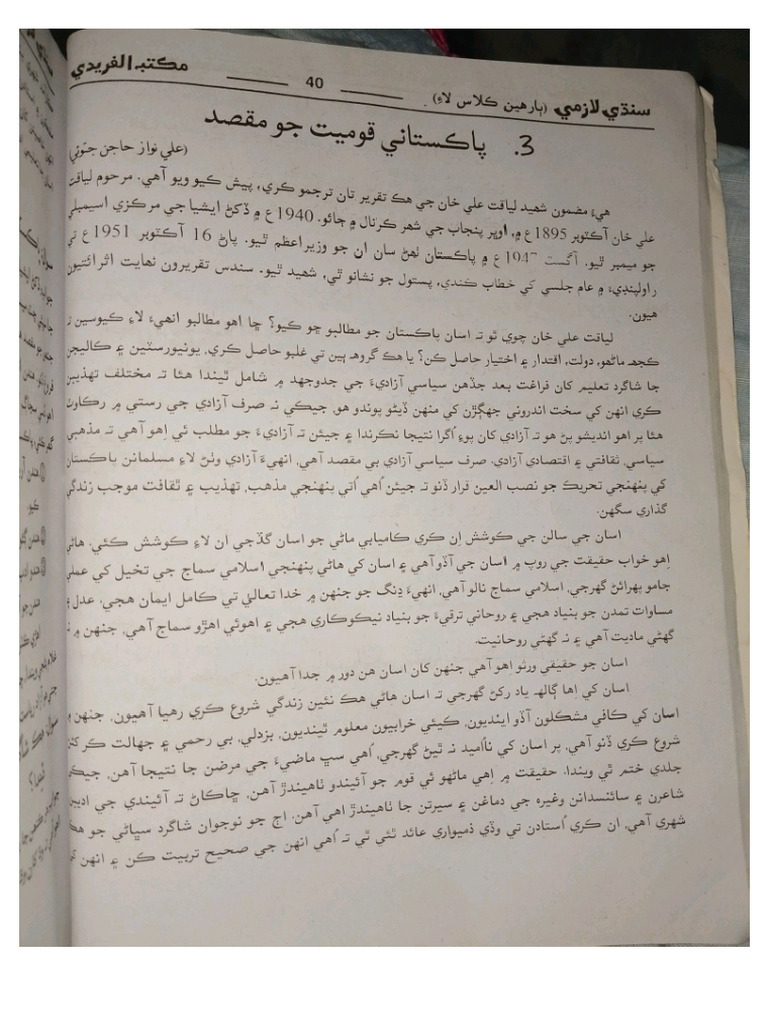 سنڌي لازمي (ٻارهين ڪلاس لاءِ) 40 مڪتبه الفريدي
3. پاڪستاني قوميت جو مقصد
(علي نواز حاجن جتوئي)
هيءُ مضمون شهيد لياقت علي خان جي هڪ تقرير تان ترجمو ڪري، پيش ڪيو ويو آهي. مرحوم لياقت
علي خان آڪٽوبر 1895ع ۾، اوڀر پنجاب جي شهر ڪرنال ۾ ڄائو. 1940ع ۾ ڏکڻ ايشيا جي مرڪزي اسيمبلي
جو ميمبر ٿيو. آگسٽ 1947ع ۾ پاڪستان ٺهڻ سان ان جو وزيراعظم ٿيو. پاڻ 16 آڪٽوبر 1951ع تي
راولپنڊيءَ ۾ عام جلسي کي خطاب ڪندي، پستول جو نشانو ٿي، شهيد ٿيو. سندس تقريرون نهايت اثرائتيون
هيون.
لياقت علي خان چوي ٿو ته اسان پاڪستان جو مطالبو ڇو ڪيو؟ ڇا اهو مطالبو انهيءَ لاءِ ڪيوسين ته
ڪجهه ماڻهو، دولت، اقتدار ۽ اختيار حاصل ڪن؟ يا هڪ گروهه ٻين تي غلبو حاصل ڪري، يونيورسٽين ۽ ڪاليجن
جا شاگرد تعليم کان فراغت بعد جڏهن سياسي آزاديءَ جي جدوجهد ۾ شامل ٿيندا هئا ته مختلف تهذيبن
ڪري انهن کي سخت اندروني جهڳڙن کي منهن ڏيڻو پوندو هو، جيڪي نه صرف آزادي جي رستي ۾ رڪاوٽ
هئا پر اهو انديشو پڻ هو ته آزادي کان پوءِ اُگرا نتيجا نڪرندا ۽ جيئن ته آزاديءَ جو مطلب ئي اِهو آهي ته مذهبي
سياسي، ثقافتي ۽ اقتصادي آزادي. صرف سياسي آزادي بي مقصد آهي، انهيءَ آزادي وٺڻ لاءِ مسلمانن پاڪستان
کي پنهنجي تحريڪ جو نصب العين قرار ڏنو ته جيئن اُهي اُتي پنهنجي مذهب، تهذيب ۽ ثقافت موجب زندگي
گذاري سگهن.
اسان جي سالن جي ڪوشش اِن ڪري ڪاميابي ماڻي جو اسان گڏجي ان لاءِ ڪوشش ڪئي، هاڻي
اِهو خواب حقيقت جي روپ ۾ اسان جي آڏو آهي ۽ اسان کي هاڻي پنهنجي اسلامي سماج جي تخيل کي عملي
جامو پهرائڻ گهرجي، اسلامي سماج نالو آهي، انهيءَ ڍنگ جو جنهن ۾ خدا تعاليٰ تي ڪامل ايمان هجي، عدل ۽
مساوات تمدن جو بنياد هجي ۽ روحاني ترقيءَ جو بنياد نيڪوڪاري هجي ۽ اهوئي اهڙو سماج آهي، جنهن ۾ نه
گهڻي ماديت آهي ۽ نه گهڻي روحانيت.
اسان جو حقيقي ورثو اِهو آهي جنهن کان اسان هن دور ۾ جدا آهيون.
اسان کي اِها ڳالهه ياد رکڻ گهرجي ته اسان هاڻي هڪ نئين زندگي شروع ڪري رهيا آهيون، جنهن ۾
اسان کي ڪافي مشڪلون آڏو اينديون، ڪيئي خرابيون معلوم ٿينديون، بزدلي، بي رحمي ۽ جهالت ڪر کڻڻ
شروع ڪري ڏنو آهي، پر اسان کي نااُميد نه ٿيڻ گهرجي، اُهي سڀ ماضيءَ جي مرضن جا نتيجا آهن، جيڪي
جلدي ختم ٿي ويندا. حقيقت ۾ اِهي ماڻهو ئي قوم جو آئيندو ٺاهيندڙ آهن، ڇاڪاڻ ته آئيندي جي اديبن
شاعرن ۽ سائنسدانن وغيره جي دماغن ۽ سيرتن جا ٺاهيندڙ اهي آهن. اڄ جو نوجوان شاگرد سڀاڻي جو هڪ
شهري آهي، ان ڪري اُستادن تي وڏي ذميواري عائد ٿئي ٿي ته اُهي انهن جي صحيح تربيت ڪن ۽ انهن کي